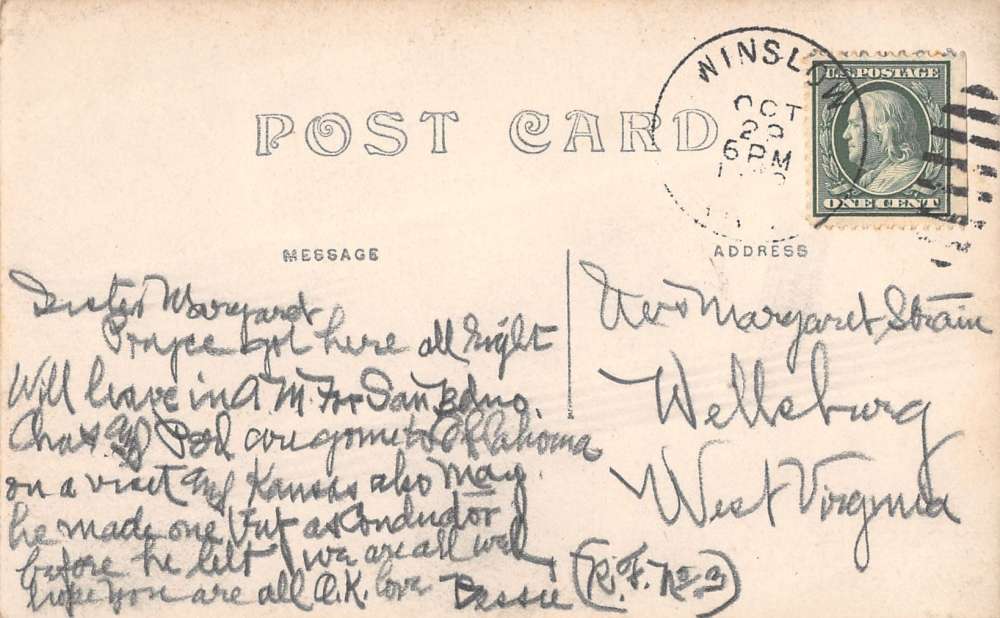 POST CARD
WINSLOW
OCT
6 PM
U.S. POSTAGE
ONE CENT
MESSAGE
ADDRESS
Sister Margaret
got here all right
Will leave in A M For San Bdno.
Chas and are gone to Oklahoma
on a visit and Kansas also May
he made one as Conductor
before he left we are all well
hope you are all O.K. love Bessie
Margaret Strain
Wellsburg
West Virginia
(R. F. No 3)